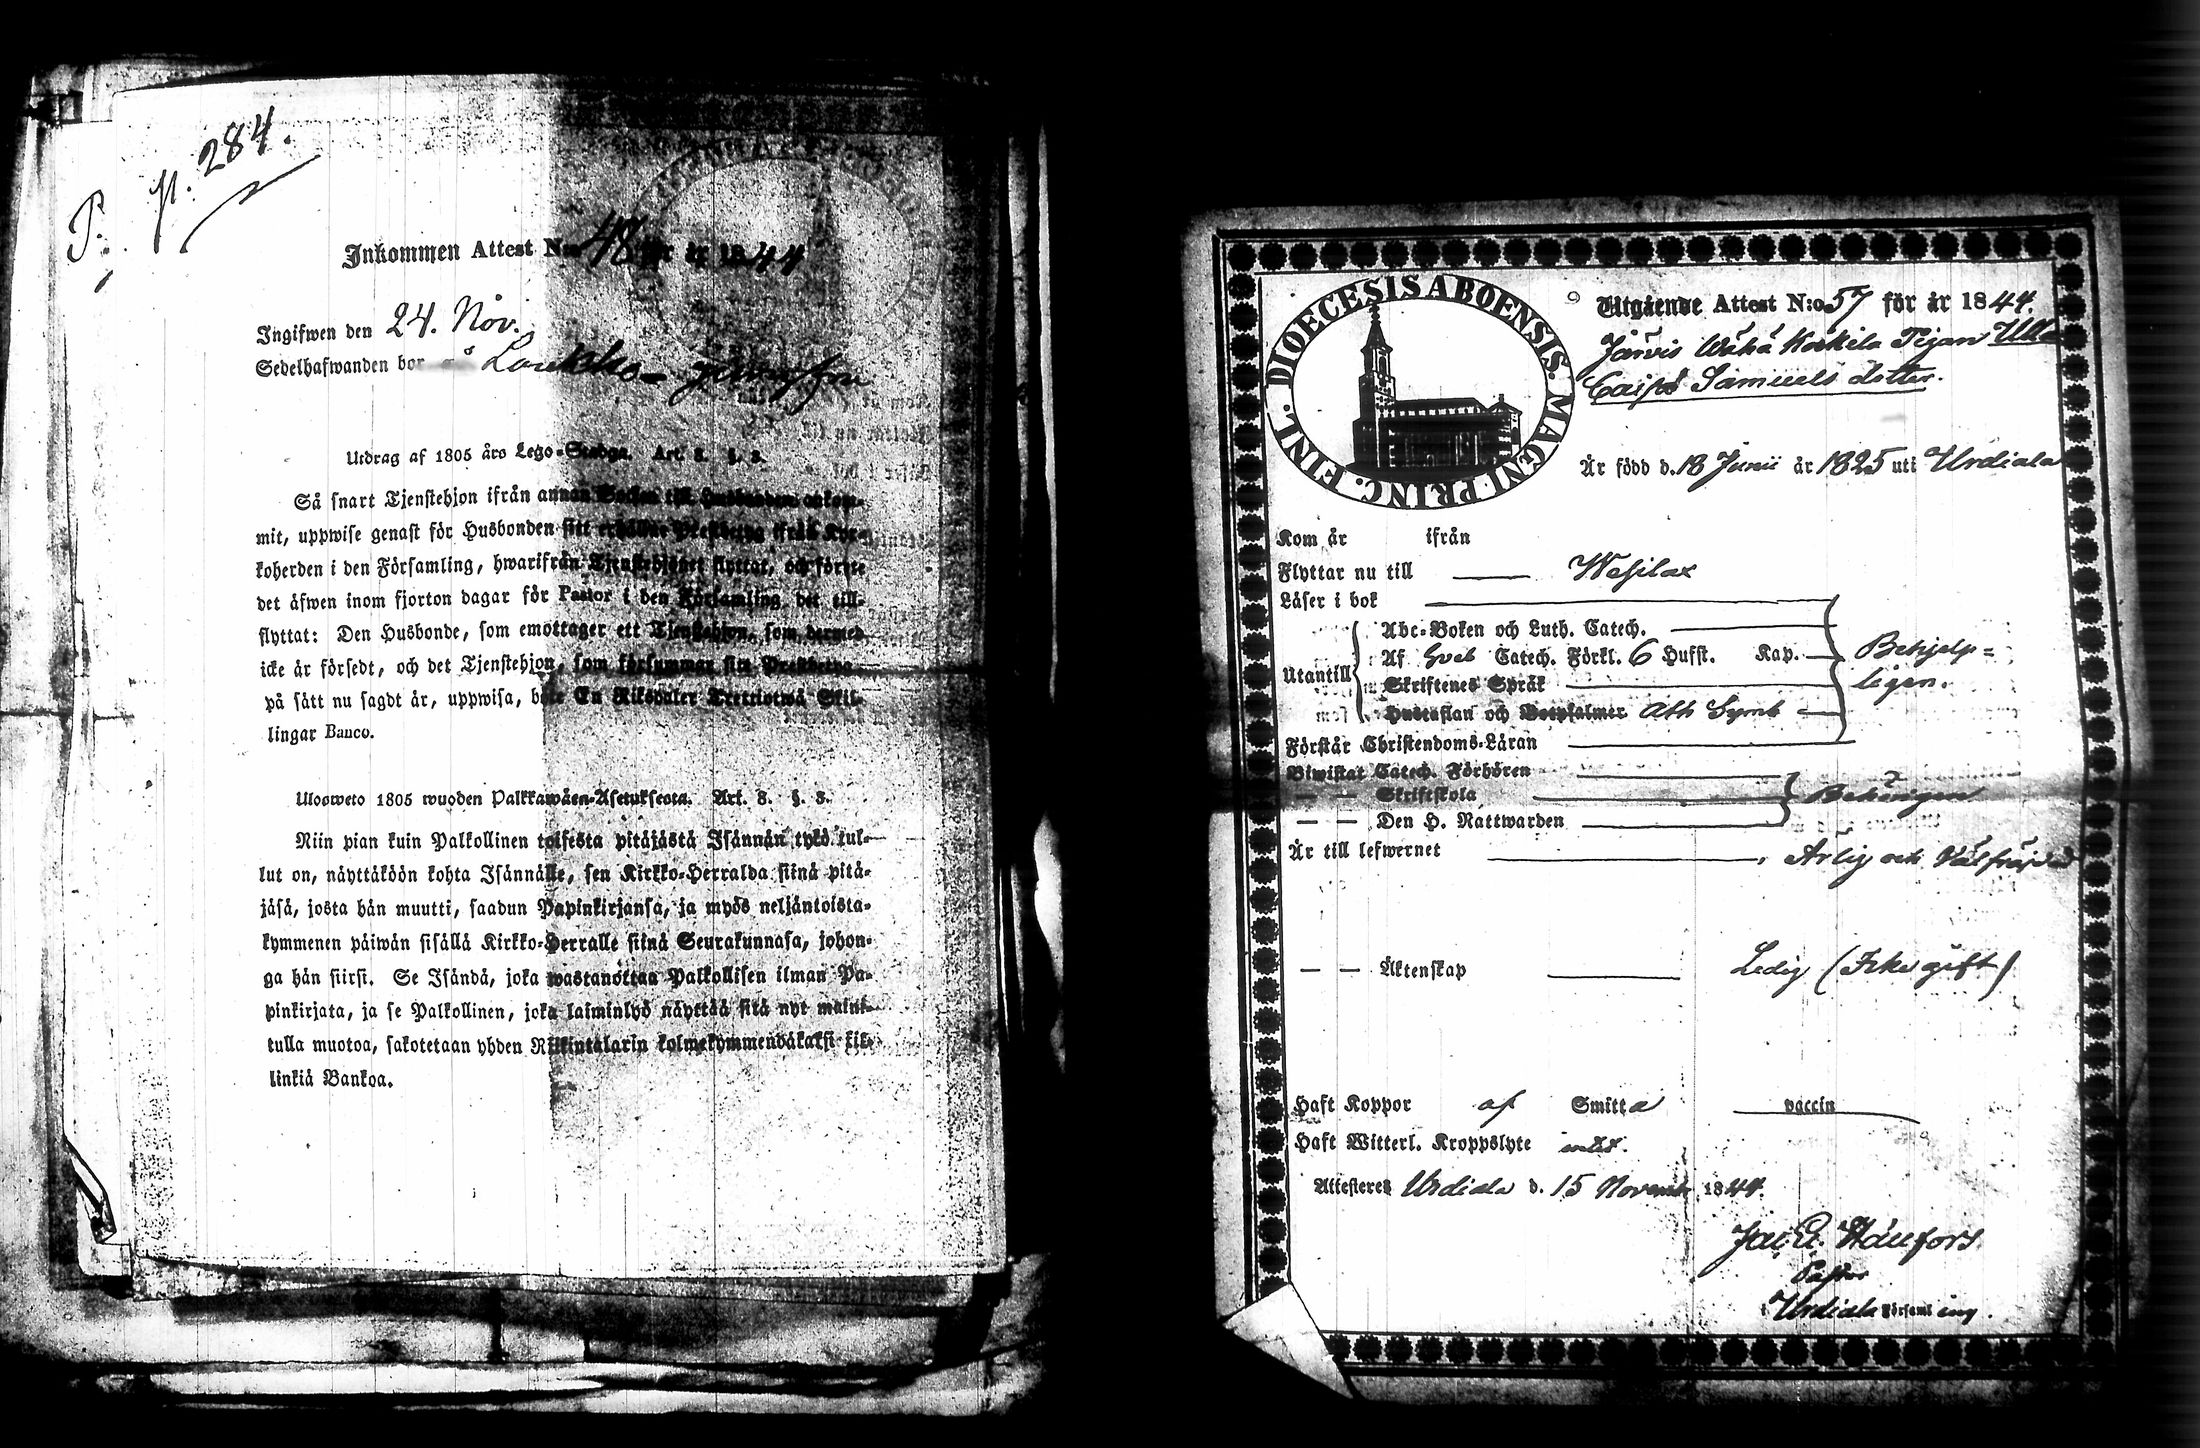 P. p. 284.
Inkommen Attest N:o 48 för år 1844
Ingifwen den 24. Nov.
Sedelhafwanden bor på Loukko-
Utdrag af 1805 års Lego-Stadga. Art. 8. §. 3.
Så snart Tjenstehjon ifrån annan Socken till Husbonden ankom-
mit, uppwise genast för Husbonden sitt erhållne Prestbetyg ifrån Kyr-
koherden i den Församling, hwarifrån Tjenstehjonet flyttat, och förete
det äfwen inom fjorton dagar för Pastor i den Församling det till-
flyttat: Den Husbonde, som emottager ett Tjenstehjon, som dermed
icke är försedt, och det Tjenstehjon, som försummar sitt Prestbetyg
på sätt nu sagdt är, uppwisa, böte En Riksdaler Trettiotwå Skil-
lingar Banco.
Ulosweto 1805 wuoden Palkkawäen-Asetuksesta. Art. 8. §. 3.
Niin pian kuin Palkollinen toisesta pitäjästä Isännän tykö tul-
lut on, näyttäköön kohta Isännälle, sen Kirkko-Herralda siinä pitä-
jäsä, josta hän muutti, saadun Papinkirjansa, ja myös neljäntoista-
kymmenen päiwän sisällä Kirkko-Herralle siinä Seurakunnasa, johon-
ga hän siirsi. Se Isändä, joka wastanottaa Palkollisen ilman Pa-
pinkirjata, ja se Palkollinen, joka laiminlyö näyttää sitä nyt maini-
tulla muotoa, sakotetaan yhden Riikintalarin kolmekymmendäkaksi kil-
linkiä Bankoa.
DIOECESIS ABOENSIS. MAGNI PRINC. FINL.
Utgående Attest N:o 57 för år 1844.
Järvis Wähä Korkila Pigan Ulla
Caisa Samuels dotter.
Är född d. 18 Junii år 1825 uti Urdiala
Kom år ifrån
Flyttar nu till Wesilax
Läser i bok
Abc-Boken och Luth. Catech.
Utantill Af Sveb Catech. Förkl. 6 Hufst. Kap. Behjelp=
Skriftenes Språk ligen.
Hustaflan och Botpsalmer Ath Symb
Förstår Christendoms-Läran
Biwistat Catech. Förhören
— — Skriftskola Behörigen
— — Den H. Nattwarden
Är till lefwernet Ärlig och Välfräjdad
— — Äktenskap Ledig (Icke gift)
Haft Koppor af Smitta vaccin
Haft Witterl. Kroppslyte intet.
Attesteres Urdiala d. 15 Novemb 1844.
Pastor
i Urdiala Församling.